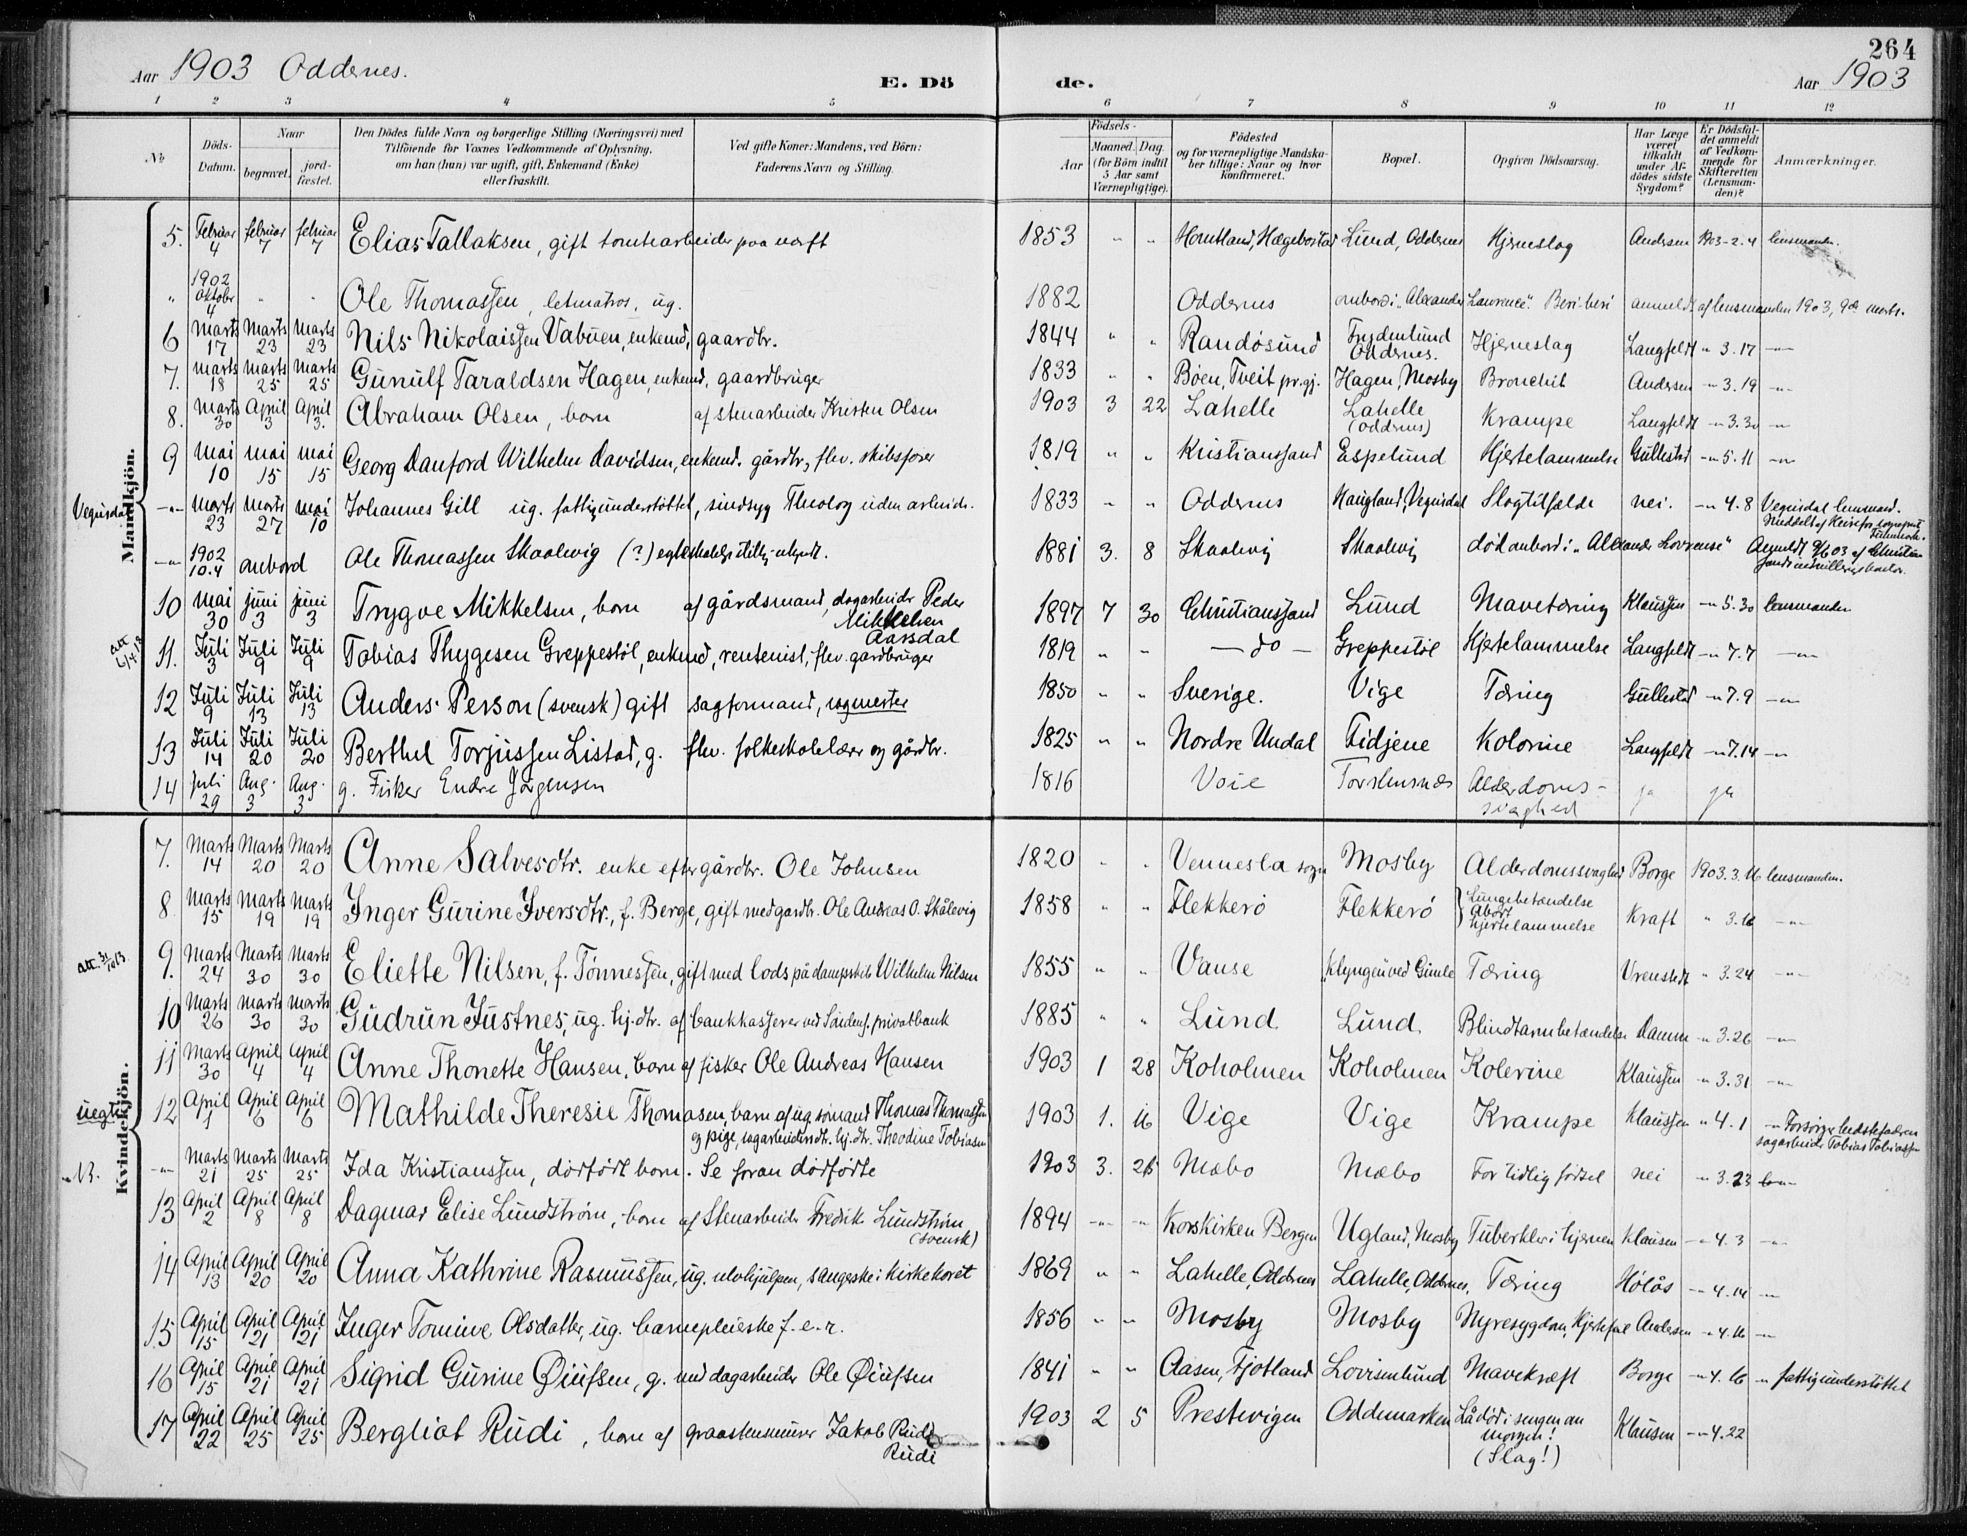 264
Aar 1903 Oddernes.
E. Dö
de.
Aar 1903
1 2 3 4 5 6 7 8 9 10 11 12
No
Döds-
Datum.
Naar
begravet.
jord-
fæstet.
Den Dödes fulde Navn og borgerlige Stilling (Næringsvei) med
Tilföiende for Voxnes Vedkommende af Oplysning,
om han (hun) var ugift, gift, Enkemand (Enke)
eller fraskilt.
Ved gifte Koner: Mandens, ved Börn:
Faderens Navn og Stilling.
Födsels-
Aar
Maaned. Dag.
(for Börn indtil
5 Aar samt
Værnepligtige).
Födested
og for værnepligtige Mandska-
ber tillige: Naar og hvor
Konfirmeret.
Bopæl.
Opgiven Dödsaarsag.
Har Læge
været
tilkaldt
under Af-
dödes sidste
Sygdom?
Er Dödsfal-
det anmeldt
af Vedkom-
mende for
Skifteretten
(Lensman-
den)?
Anmærkninger.
Mandkjön.
5. Februar 4 februar 7 februar 7 Elias Tallaksen, gift tomtearbeider paa værft 1853 " " Homtland, Hægebostad Lund, Oddernes Hjerneslag Andersen 1903-2.4 lensmanden.
" 1902 Oktober 4 " " Ole Thomassen, letmatros, ug. 1882 Oddernes ombord i "Alexander Lawrence". Beri-beri anmeldt af lensmanden 1903, 9de marts.
6 Marts 17 Marts 23 Marts 23 Nils Nikolaissen Vabuen, enkemd, gaardbr. 1844 " " Randøsund Frydenlund Oddernes. Hjerneslag Langfeldt " 3.17 -"-
7. Marts 18 Marts 25 Marts 25 Gunulf Taraldsen Hagen, enkemd, gaardbruger 1833 " " Bøen, Tveit pr.gj. Hagen, Mosby Bronchit Andersen -"3.19 -"-
8. Marts 30 April 3 April 3. Abraham Olsen, barn af stenarbeider Kristen Olsen 1903 3 22 Lahelle Lahelle (Oddernes) Krampe Langfeldt -"3.30 -"-
9 mai 10 mai 15 mai 15 Georg Danford Wilhelm Davidsen, enkemd. gårdbr, flev. skibsfører 1819 " " Kristianssand Espelund Hjertelammelse Gullestad -"5.11 -"-
Vegusdal -"- Marts 23 marts 27 mai 10 Johannes Gill ug. fattigunderstøttet, sindsyg Theolog uden arbeide. 1833 " " Oddernes Haugland, Vegusdal Slagtilfælde nei. -"4.8 Vegusdal lensmand.
-"- 1902 10.4 ombord Ole Thomassen Skaalevig (?) 1881 3. 8 Skaalevig Skaalevig død ombord i "Alexander Lovrense" Anmeldt 9/6 03 af Christian-
10 mai 30 juni 3 juni 3 Trygve Mikkelsen, barn af gårdsmand, dagarbeider Peder Mikkelsen Aarsdal 1897 7 30 Christianssand Lund Mavetæring Klaussen -"5.30 lensmanden
11. Juli 3 Juli 9 Juli 9 Tobias Thygesen Greppestøl, enkemd, rentenist, flev. gardbruger 1819 " " - do - Greppestøl Hjertelammelse Langfeldt -"7.7 -"-
12 Juli 9 Juli 13 Juli 13 Anders Person (svensk) gift sagformand, sagmester 1850 " " Sverige. Vige Tæring Gullestad -"7.9 -"-
13 Juli 14 Juli 20 Juli 20 Berthel Torjussen Listad, g. flev. folkeskolelærer og gårdbr. 1825 " " Nordre Undal Fidjene Kolerine Langfeldt -"7.14 -"-
14 juli 29 Aug. 3 Aug. 3 g. Fisker Endre Jørgensen 1816 Voie Torshusnæs Alderdoms-svaghed ja ja
Kvindekjön.
7. Marts 14 Marts 20 Marts 20 Anne Salvesdtr. enke efter gårdbr. Ole Johnsen 1820 " " Vennesla sogn Mosby Alderdomssvaghed Borge 1903.3.16 lensmanden.
8 Marts 15 Marts 19 Marts 19 Inger Gurine Iversdtr., f. Berge, gift med gardbr. Ole Andreas O. Skålevig 1858 " " Flekkerø Flekkerø Lungebetændelse Abort hjertelammelse Kraft " 3.16 -"-
9. Marts 24 Marts 30 Marts 30 Eliette Nilsen, f. Tønnessen, gift med lods på dampskib Wilhelm Nilsen 1855 " " Vanse Klyngen ved Gimle Tæring Vrenstedt " 3.24 -"-
10 Marts 26 Marts 30 Marts 30 Gudrun Justnes, ug. hj.dtr. af bankkasserer ved Søndenf. privatbank 1885 " " Lund Lund Blindtarmbetændelse Damm -"3.26 -"-
11 Marts 30 April 4 April 4 Anne Thonette Hansen, barn af fisker Ole Andreas Hansen 1903 1 28 Koholmen Koholmen Kolerine Klaussen -"3.31 -"-
uegte 12 April 1 April 6 April 6 Mathilde Theresie Thomasen, barn af ug. sømand Thomas Thomassen
og pige, sagarbeidersdtr. hj.dtr. Theodine Tobiasen 1903 1. 16 Vige Vige Krampe Klaussen " 4.1 -"- Forsørger bedstefaderen
sagarbeider Tobias Tobiassen
NB. -"- Marts 21 Marts 25 Marts 25 Ida Kristianssen, dødfødt barn. Se foran dødfødte 1903 3. 21 Mæbo Mæbo For tidlig fødsel nei -"3.23
13 April 2 April 8 April 8 Dagmar Elise Lundstrøm, barn af Stenarbeider Fredrik Lundstrøm (svensk) 1894 -"- -"- Korskirken Bergen Ugland, Mosby Tuberkler i hjernen Klausen -"4.3 -"-
14 April 13 April 20 April 20 Anna Kathrine Rasmussen, ug. selvhjulpen, sangerske i kirkekoret 1869 " " Lahelle, Oddernes Lahelle, Oddernes, Tæring Høiås -"4.14 -"-
15 April 15 April 21 April 21 Inger Tomine Olsdatter, ug. barnepleierske f.e.r. 1856 " " Mosby Mosby Nyresygdom, Hjertefeil Andersen -"4.16 -"-
16 April 15 April 21 April 21 Sigrid Gurine Øiufsen, g. med dagarbeider Ole Øiufsen 1841 " " Aasen, Fjotland Lovisenlund Mavekræft Borge -"4.16 -"- fattigunderstøttet
17 April 22 April 25 April 25 Bergliot Rudi, barn af graastensmurer Jakob Rudi Rudi 1903 2 5 Prestevigen Oddemarken Lå død i sengen om morgen! (Slag!) Klausen -"4.22